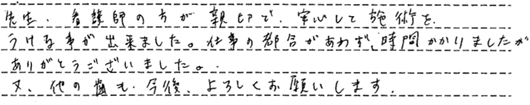 先生、看護師の方が親切で、安心して施術を
うける事が出来ました。仕事の都合があわず、時間かかりましたが
ありがとうございました。
又、他の歯も、今後、よろしくお願いします。